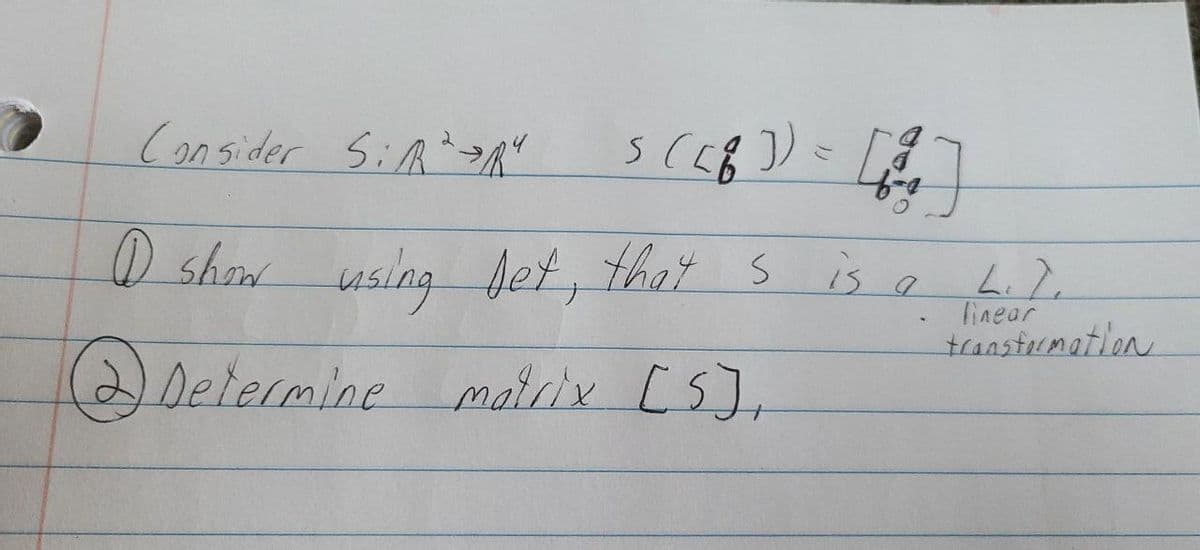 Consider S: R² → R⁴ S([a b]) = [a b-a 0]
① show using def, that S is a L.T.
linear
transformation
② Determine matrix [S],